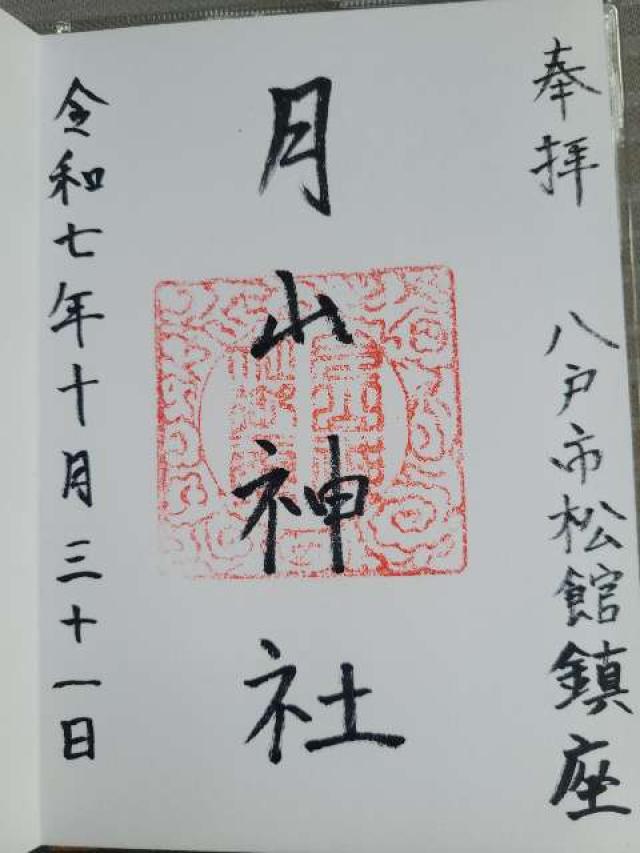 奉拝 八戸市松館鎮座
月山神社
令和七年十月三十一日